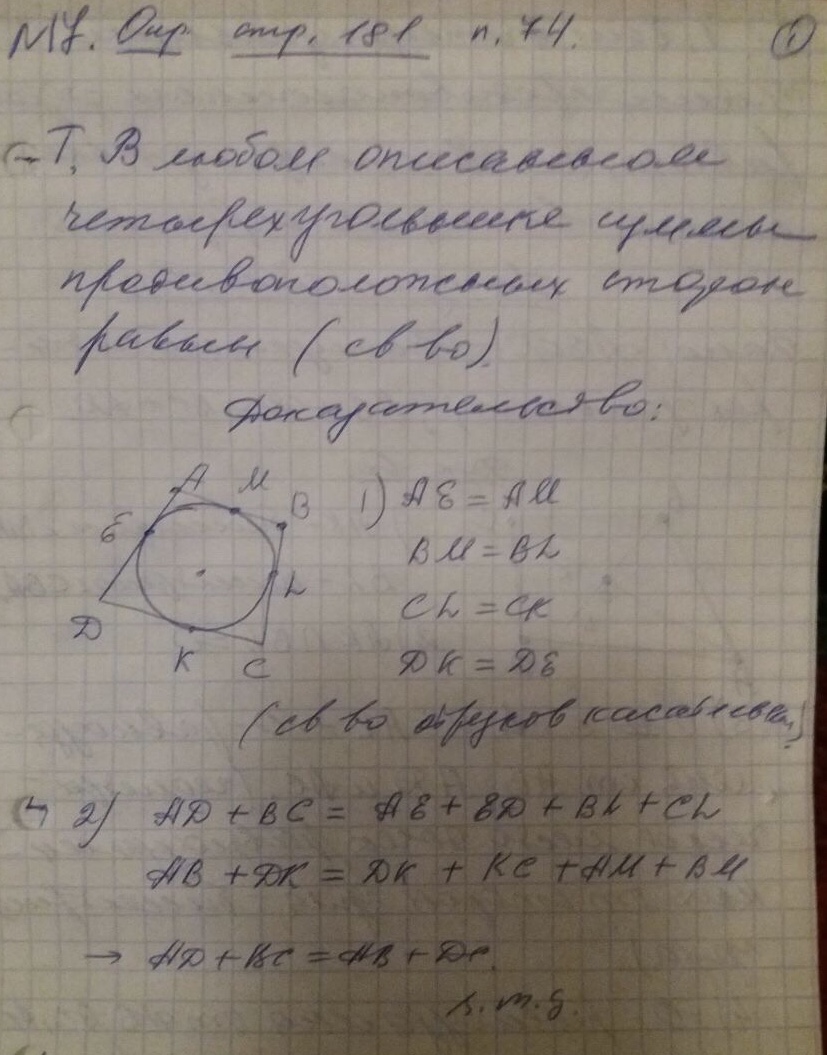 №7. Опр стр. 181 п. 74. ①
Т. В любом описанном
четырехугольнике суммы
противоположных сторон
равны (св во).
Доказательство:
A M B L C K D E
1) AE = AM
BM = BL
CL = CK
DK = DE
(св во отрезков касательных)
2) AD + BC = AE + ED + BL + CL
AB + DK = DK + KC + AM + BM
→ AD + BC = AB + DC.
ч.т.д.